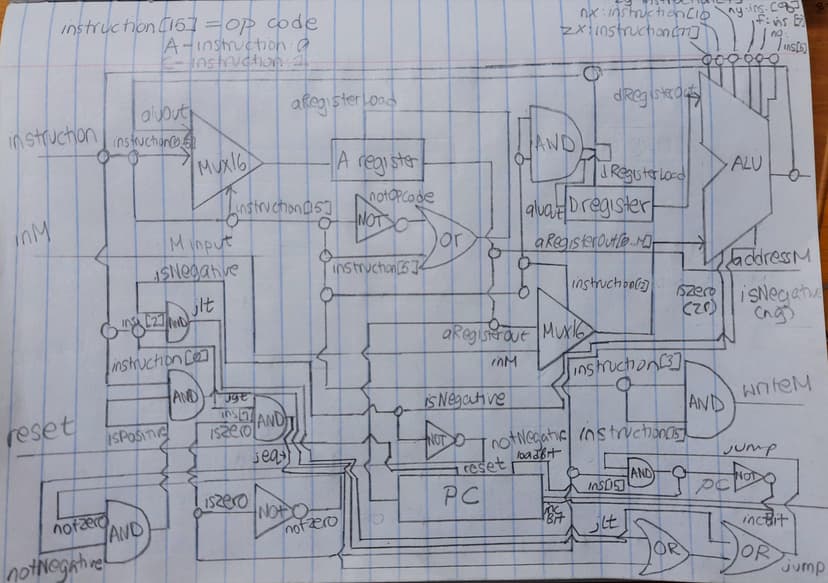 instruction[15] = op code
A-instruction: 0
C-instruction: 1
nx: instruction[10]
zx: instruction[11]
ny: ins[8]
f: ins[7]
no
ins[6]
aluOut
aRegisterLoad
dRegisterOut
instruction
instruction[0..15]
Mux16
A register
AND
ALU
dRegisterLoad
notOpcode
instruction[15]
NOT
Or
aluOut
D register
inM
M input
aRegisterOut[0..14]
addressM
isNegative
instruction[5]
instruction[12]
iszero
(zr)
isNegative
(ng)
ins[2]
AND
jlt
Mux16
aRegisterOut
inM
instruction[0]
instruction[3]
AND
jgt
ins[1]
AND
isNegative
AND
writeM
reset
isPositive
iszero
NOT
notNegative
instruction[15]
jeq
reset
loadBit
jump
PC
ins[15]
AND
PC
NOT
inc
Bit
iszero
Not
notzero
notzero
AND
jlt
incBit
notNegative
OR
OR
jump